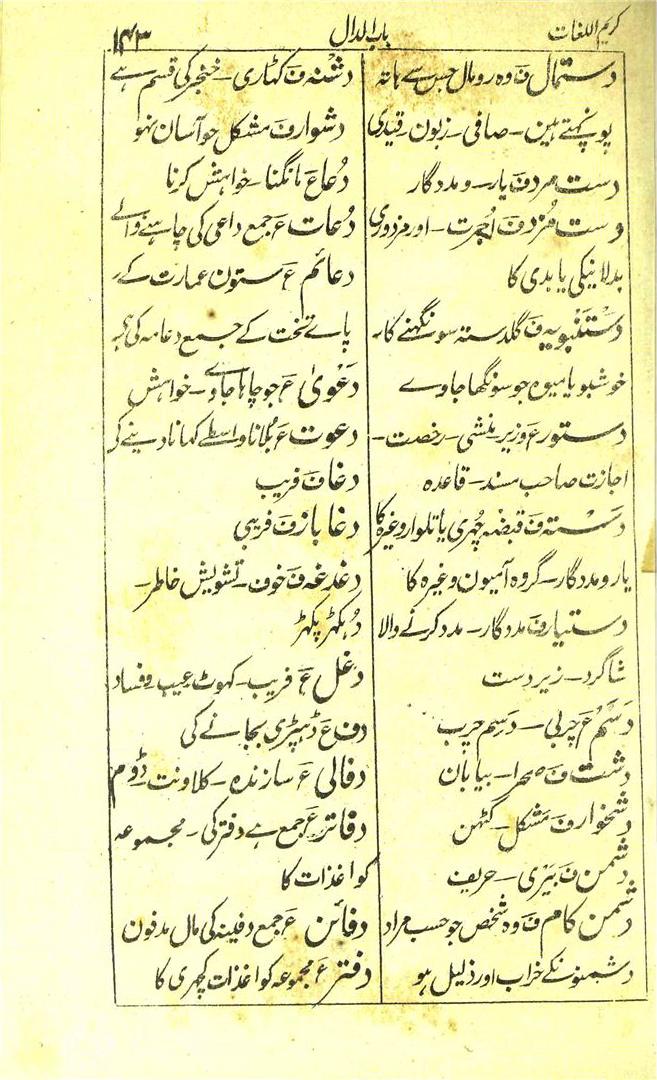 کریم اللغات
باب الدال
۱۴۳
دستمال ف وہ رومال جس سے ہاتہ
پونہچتے ہین ۔ صافی ۔ زبون ۔ قیدی
دست مرد ف یار ۔ و مددگار
دست مُزد ف اُجرت ۔ اور مزدوری
بدلا نیکی یا بدی کا
دستنبویہ ف گلدستہ سونگہنے کا ۔
خوشبو یا میوہ جو سونگھا جاوے
دستور ع وزیر منشی ۔ رخصت ۔
اجازت صاحب مسند ۔ قاعدہ
دستہ ف قبضہ چہری یا تلوار وغیرہ کا
یار و مددگار ۔ گروہ آدمیون وغیرہ کا
دستیار ف مددگار ۔ مدد کرنے والا
شاگرد ۔ زیر دست
دَسَم ع چربی ۔ دَسِم چرب
دشت ف صحرا ۔ بیابان
دشخوار ف مشکل ۔ کٹہن
دشمن ف بَیری ۔ حریف
دشمن کام ف وہ شخص جو حسب مراد
دشمنونکے خراب اور ذلیل ہو
دشنہ ف کٹاری ۔ خنجر کی قسم ہے
دشوار ف مشکل جو آسان نہو
دُعا ع مانگنا خواہش کرنا
دُعات ع جمع داعی کی چاہنے والے
دعائم ع ستون عمارت کے ۔
پائے تخت کے جمع دعامہ کی ہی
دَعْویٰ ع جو چاہا جاوے ۔ خواہش
دعوت ع بُلانا واسطے کہانا دینے کی
دغا ف فریب
دغا باز ف فریبی
دغدغہ ف خوف ۔ تشویش خاطر ۔
دُہکہڑ پکہڑ
دغل ع فریب ۔ کہوٹ عیب و فساد
دف ع ڈہپڑی بجانے کی
دفالی ع سازندہ ۔ کلاونت ۔ ڈوم
دفاتر ع جمع ہے دفتر کی ۔ مجموعہ
کواغذات کا
دفائن ع جمع دفینہ کی مال مدفون
دفتر ع مجموعہ کواغذات کچہری کا